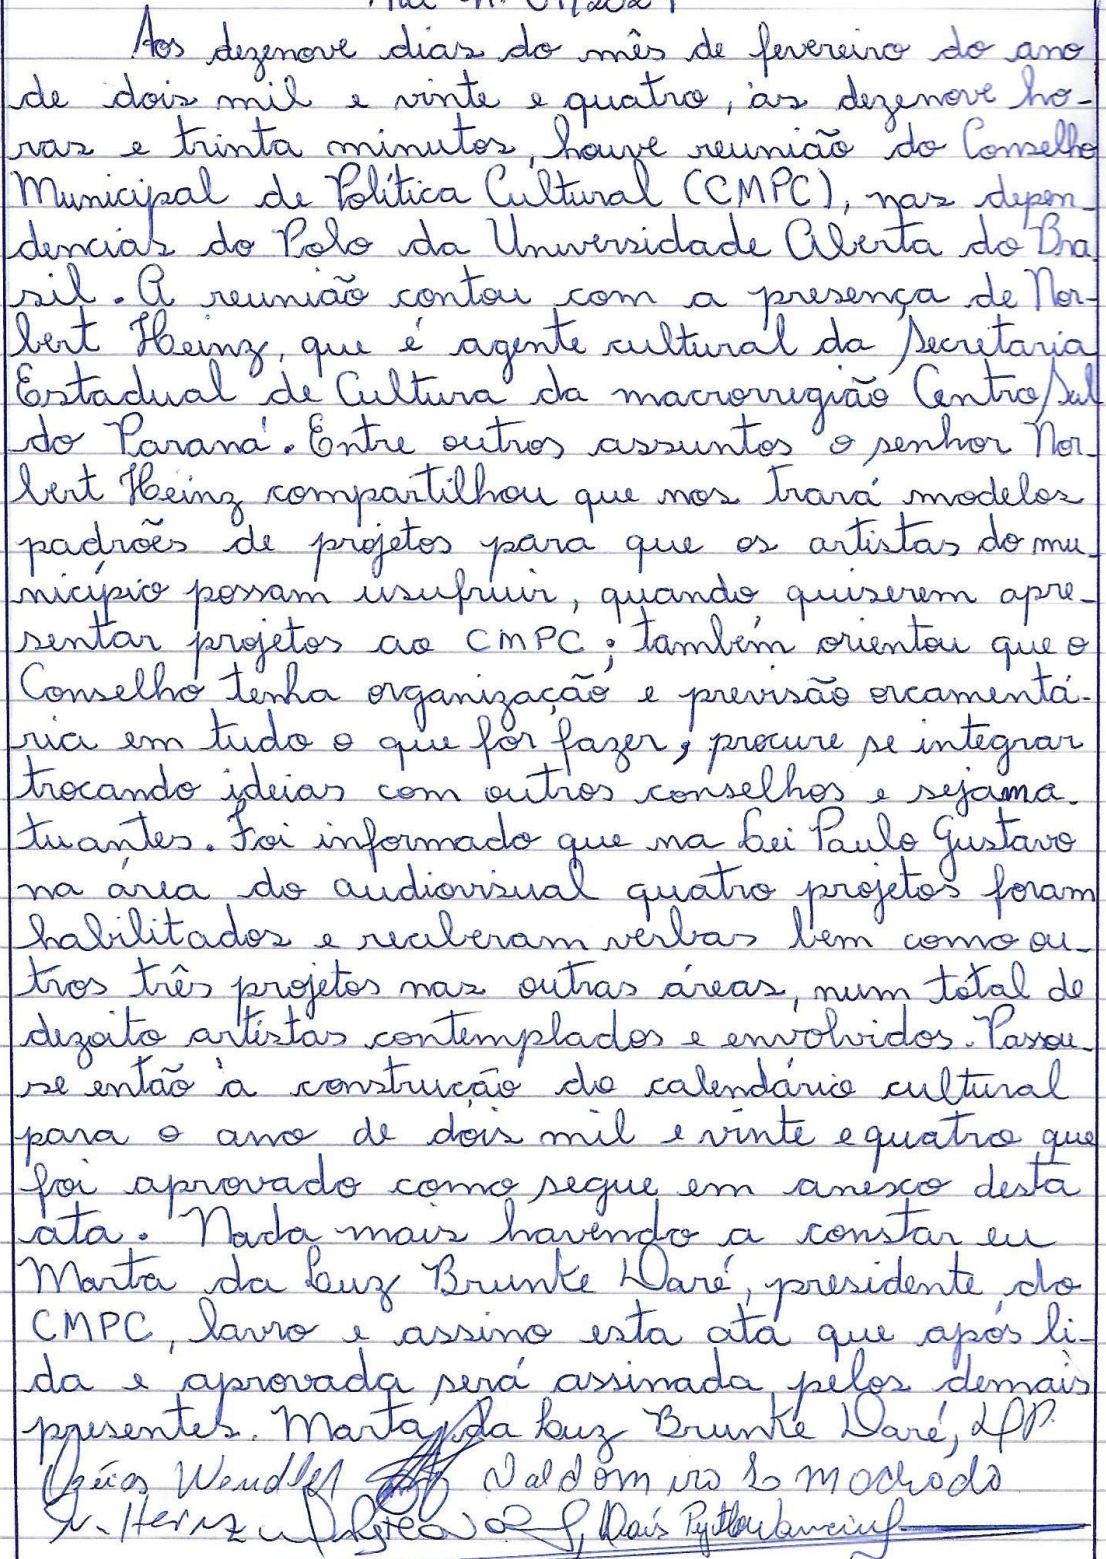 Ata nº 01/2024
Aos dezenove dias do mês de fevereiro do ano
de dois mil e vinte e quatro, às dezenove ho-
ras e trinta minutos, houve reunião do Conselho
Municipal de Política Cultural (CMPC), nas depen-
dencias do Polo da Universidade Aberta do Bra
sil. A reunião contou com a presença de Nor-
bert Heinz, que é agente cultural da Secretaria
Estadual de Cultura da macrorregião Centro Sul
do Paraná. Entre outros assuntos o senhor Nor-
bert Heinz compartilhou que nos trará modelos
padrões de projetos para que os artistas do mu-
nicípio possam usufruir, quando quiserem apre-
sentar projetos ao CMPC; também orientou que o
Conselho tenha organização e previsão orcamentá-
ria em tudo o que for fazer, procure se integrar
trocando ideias com outros conselhos e sejam a-
tuantes. Foi informado que na Lei Paulo Gustavo
na área do audiovisual quatro projetos foram
habilitados e receberam verbas bem como ou-
tros três projetos nas outras áreas, num total de
dezoito artistas contemplados e envolvidos. Passou-
se então à construção do calendário cultural
para o ano de dois mil e vinte e quatro que
foi aprovado como segue em anexo desta
ata. Nada mais havendo a constar eu
Marta da Luz Brunke Daré, presidente do
CMPC, lavro e assino esta ata que após li-
da e aprovada será assinada pelos demais
presentes. Marta da Luz Brunke Daré,
Wendler Valdomiro Machado
N. Heinz